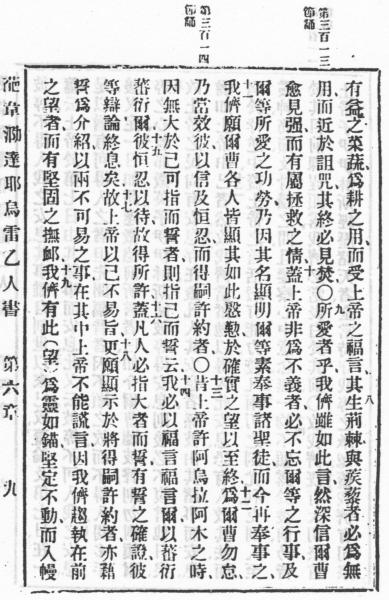 第三百一十三
節誦
第三百一十四
節誦
有益之菜蔬、爲耕之用、而受上帝之福言、八其生荊棘與蒺藜者、必爲無
用、而近於詛咒、其終必見焚、〇九所愛者乎、我儕雖如此言、然深信爾曹
愈見强、而有屬拯救之情、十蓋上帝非爲不義者、必不忘爾等之行事及
爾等所愛之功勞、乃因其名顯明爾等素奉事諸聖徒、而今再奉事之、
十一我儕願爾曹各人皆顯其如此慇懃於確實之望、以至終、十二爲爾曹勿怠、
乃當效彼以信及恒忍而得嗣許約者、〇十三昔上帝許阿烏拉阿木之時、
因無大於己可指而誓者、則指己而誓、十四云、我必以福言福爾、以蕃衍
蕃衍爾、十五彼恒忍以待、故得所許、十六蓋凡人必指大者而誓、有誓之確證、彼
等辯論終息矣、十七故上帝以己不易旨更願顯示於將得嗣許約者、亦藉
誓爲介紹、十八以兩不可易之事、在其中上帝不能謊言、因我儕趨執在前
之望者、而有堅固之撫邺、十九我儕有此(望)爲靈如錨、堅定不動、而入幔
葩韋泐達耶烏雷乙人書 第六章 九